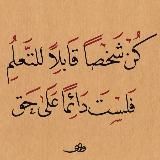 كُنْ شَخْصاً قَابِلاً للتَّعَلُّمِ
فَلَسْتَ دَائِمًا عَلَى حَق